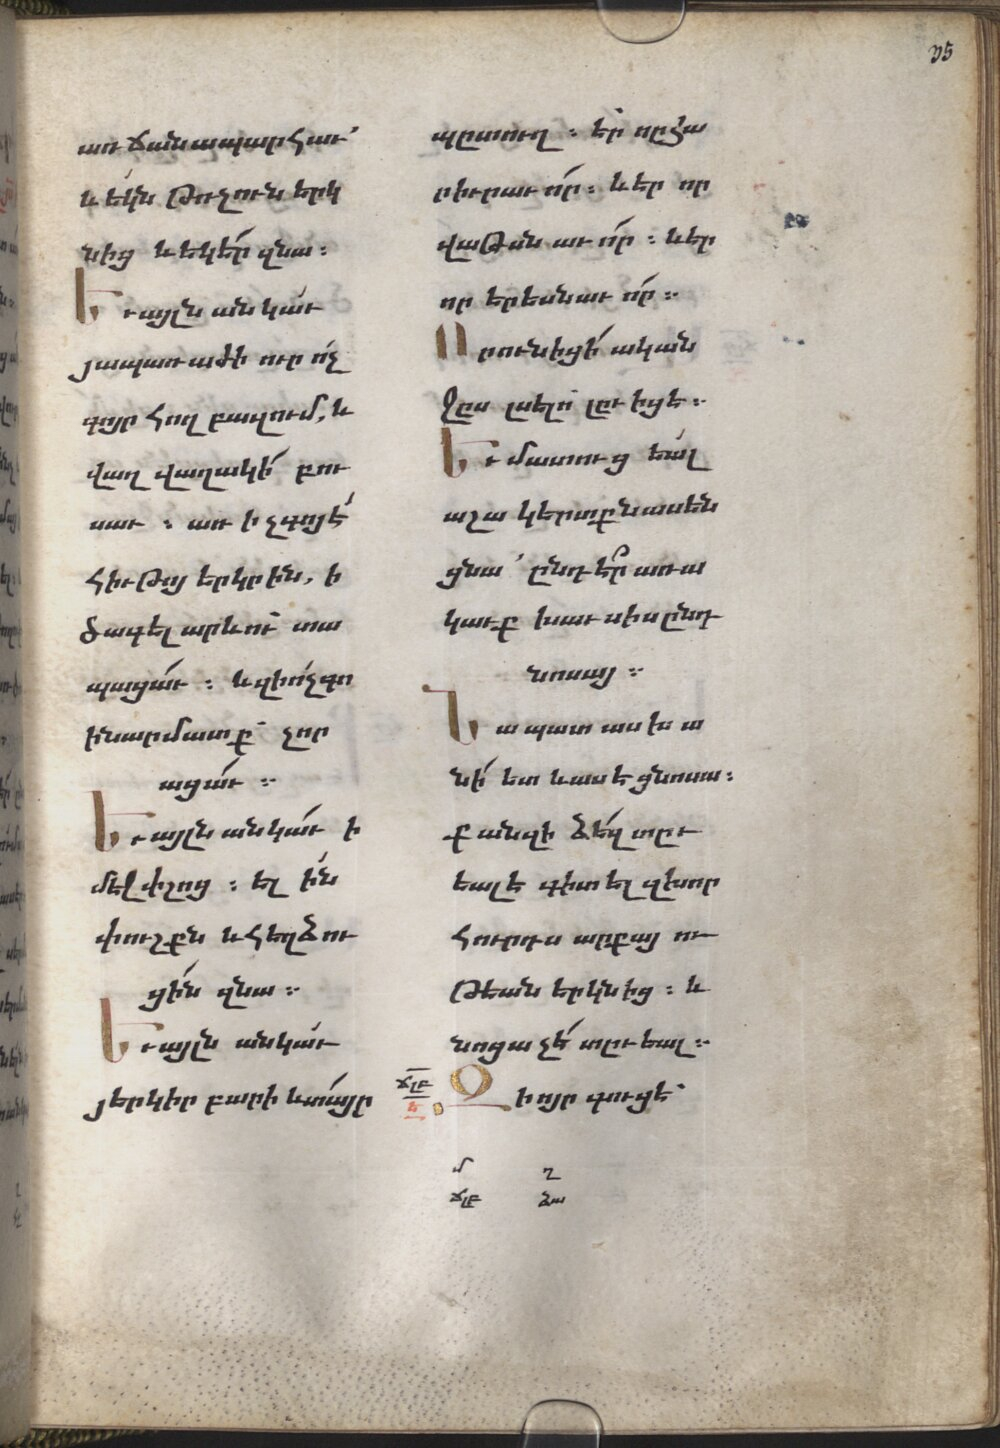 35
առ ճանապարհաւ՝
և եկն թռչուն երկ
նից և եկեր զնա ։
Եւ այլն անկաւ
յապառաժի ուր ոչ
գոյր հող բազում, և
վաղ վաղակի բու
սաւ ։ առ ի չգոյէ
հիւթոյ երկրին, ի
ծագել արևու տա
պացաւ ։ և զի ոչ գո
ին արմատք՝ չոր
ացաւ ։
Եւ այլն անկաւ ի
մէջ փշոց ։ ել ին
փուշքն և հեղձու
ցին զնա ։
Եւ այլն անկաւ
յերկիր բարի և տայր
պըտուղ ։ եր որ հա
րիւրաւոր ։ և եր որ
վաթսնաւոր ։ և եր
որ երեսնաւոր ։
Որ ունիցի ական
ջըս լսելո լըւիցէ ։
Եւ մատուցեալ
աշակերտքն ասեն
ցնա՝ ընդեր առա
կաւք խաւսիս ընդ
նոսայ ։
Նա պատասխա
նի ետ և ասէ ցնոսա ։
քանզի ձեզ տըւ
եալ է գիտել զխոր
հուրդս արքայու
թեան երկնից ։ և
նոցա չէ տըւեալ ։
ճլբ
ե
Զի ոյր գուցէ՝
մ ղ
ճլբ ձա